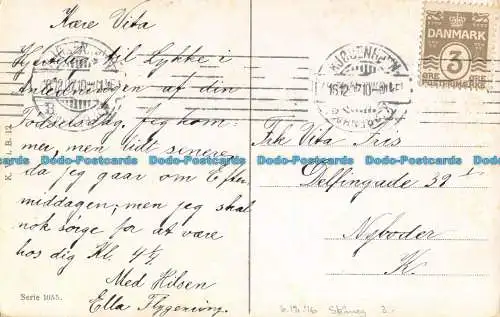 Kære Vita
Hjertelig til Lykke i
Anledningen af din
Fødselsdag. Jeg kom-
mer, men lidt senere
da jeg gaar om Efter
middagen, men jeg skal
nok sørge for at være
hos dig Kl. 4½
Med Hilsen
Ella
Serie 1055.
K. i. B. 12
KJØBENHAVN
KJØBENHAVN
16.12.07.10-11
DANMARK
3
ØRE ØRE
POSTFRIM.
Frk Vita Friis
Delfingade 32
Nyboder
K.
Dodo-Postcards Dodo-Postcards Dodo-Postcards Dodo-Postcards Dodo-Postcards